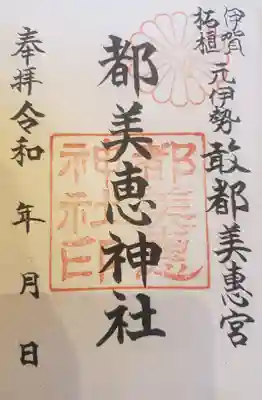 伊賀
柘植
元伊勢 敢都美恵宮
都美恵神社
都美恵
神社印
奉拝 令和 年 月 日